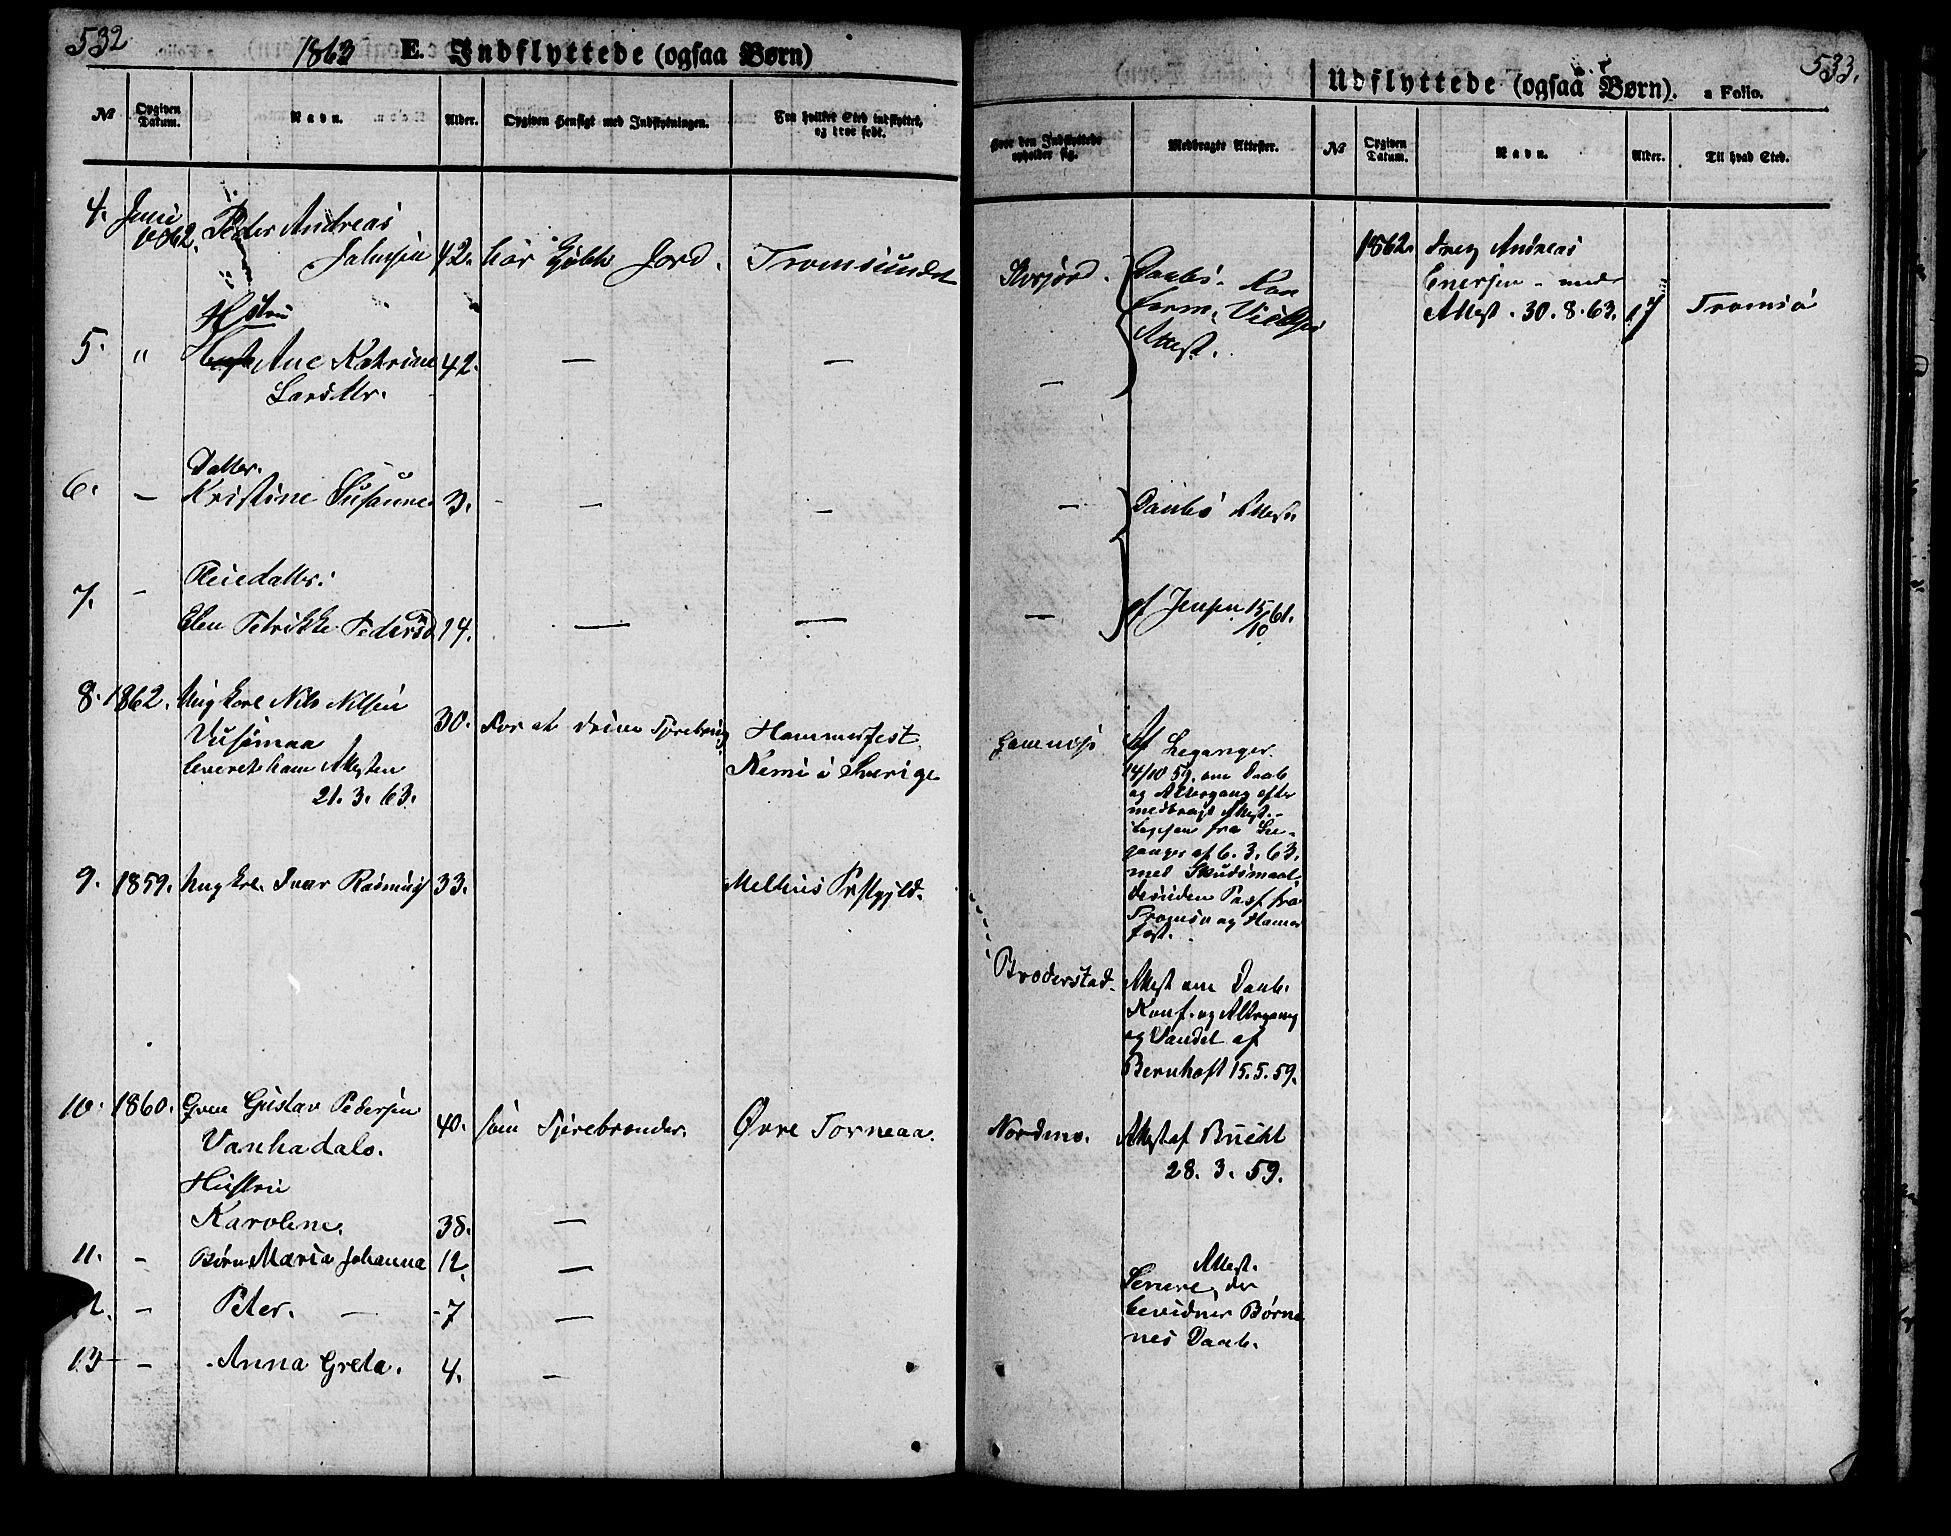 532
1863 E. Indflyttede (ogsaa Børn)
№
Opgiven Datum.
Navn.
Alder.
Opgiven Hensigt med Indflytningen.
Fra hvilket Sted indflyttet, og hvor født.
4. Juni 1862. Peder Andreas
42. har kjøbt Jord. Tromsundet
Hustru
5. " Ane Katrine 42. — —
Larsdtr.
Datter.
6. — Kristine Susanne 3. — —
Pleiedatter.
7. — Elen Petrikke Pedersd 14. — —
8. 1862. Ungkarl Nils Nilsen 30. For at drive Tjærebrug Hammerfest
leveret ham Attesten Kemi i Sverige
21. 3. 63.
9. 1859. Ungkrl. Ivar Rasmus 33. Melhus Prstgjeld.
10. 1860. Gustav Pedersen 40. som Tjærebrænder. Øvre Torneaa.
Hustru
Karoline. 38. —
11. — Børn Maria Johanna 12. —
12. — Peter. — 7 —
13 — Anna Greta. 4. —
533.
Udflyttede (ogsaa Børn). a Folio.
Hvor den Indflyttede opholder sig.
Medbragte Attester.
№
Opgiven Datum.
Navn.
Alder.
Til hvad Sted.
1862. Dreng Andreas
Enersen - med
Attest. 30. 8. 63. 17 Tromsø
Daabs-
Attest.
—
— Daabs Attest.
— af Jensen 15/10 61.
af Leganger
14/10 59. om Daab
og Altergang efter
medbragt Attest.
fra Le-
ganger af 6. 3. 63.
med Skudsmaal
desuden Pas fra
Tromsø og Hamer
fest.
Broderstad. Attest om Daab.
Konf. og Altergang
og Vandel af
Bernhoft 15. 5. 59.
Nordmo. Attest af Bucht
28. 3. 59.
Attest.
Senere, der
bevidner Børne
nes Daab.